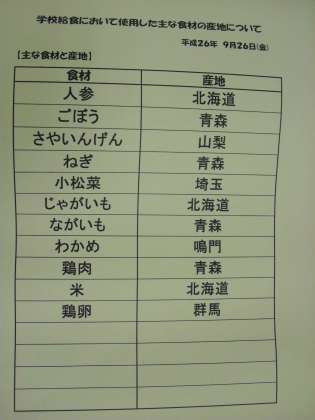 学校給食において使用した主な食材の産地について
平成26年 9月26日(金)
【主な食材と産地】
食材 産地
人参 北海道
ごぼう 青森
さやいんげん 山梨
ねぎ 青森
小松菜 埼玉
じゃがいも 北海道
ながいも 青森
わかめ 鳴門
鶏肉 青森
米 北海道
鶏卵 群馬